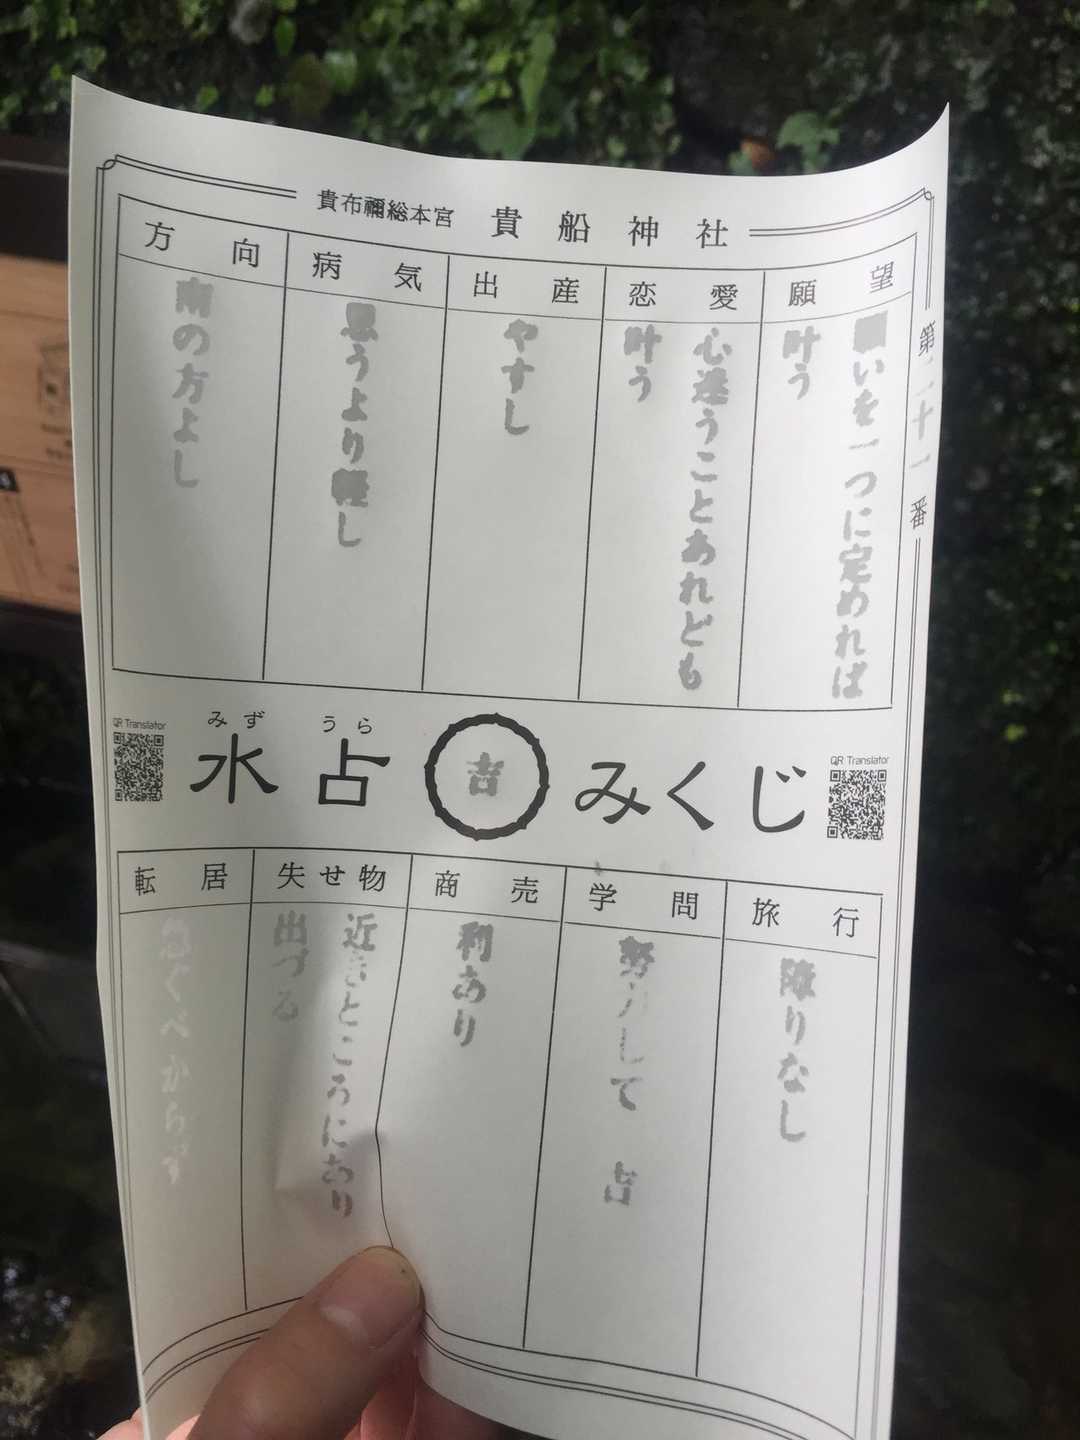 貴布禰総本宮 貴船神社
第二十一番
願望
願いを一つに定めれば
叶う
恋愛
心迷うことあれども
叶う
出産
やすし
病気
思うより軽し
方向
南の方よし
QR Translator
みず うら
水占 吉 みくじ
QR Translator
旅行
障りなし
学問
努力して 吉
商売
利あり
失せ物
近きところにあり
出づる
転居
急ぐべからず